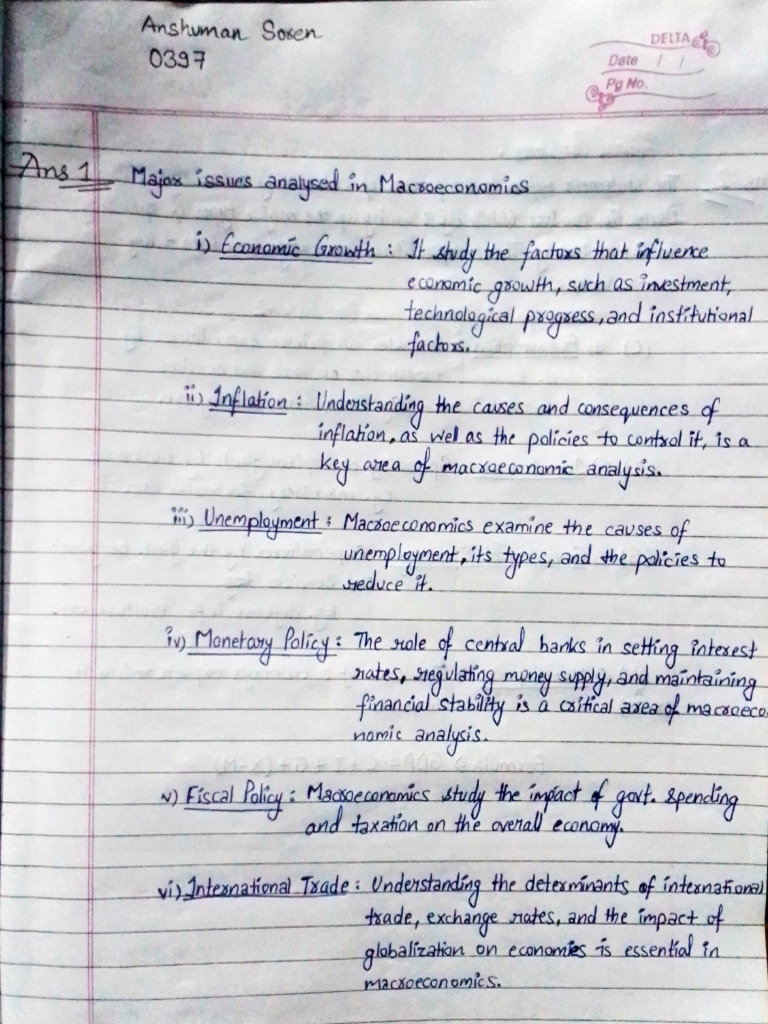 Anshuman Soren
0397
DELTA
Date / /
Pg No.
Ans 1 Major issues analysed in Macroeconomics
i) Economic Growth : It study the factors that influence
economic growth, such as investment,
technological progress, and institutional
factors.
ii) Inflation : Understanding the causes and consequences of
inflation, as wel as the policies to control it, is a
key area of macroeconomic analysis.
iii) Unemployment : Macroeconomics examine the causes of
unemployment, its types, and the policies to
reduce it.
iv) Monetary Policy : The role of central banks in setting interest
rates, regulating money supply, and maintaining
financial stability is a critical area of macroeco
nomic analysis.
v) Fiscal Policy : Macroeconomics study the impact of govt. spending
and taxation on the overall economy.
vi) International Trade : Understanding the determinants of international
trade, exchange rates, and the impact of
globalization on economies is essential in
macroeconomics.